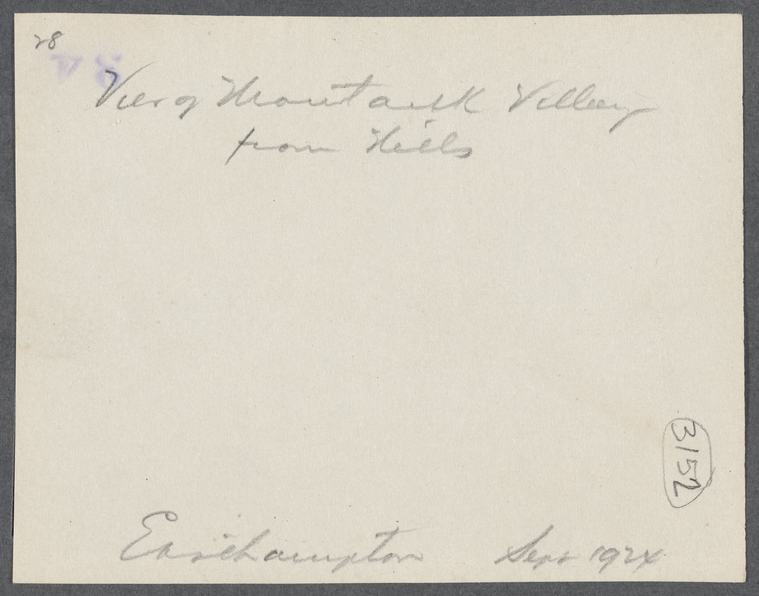 28
View of Montauk Village
from Hills
3152
Easthampton Sept 1924